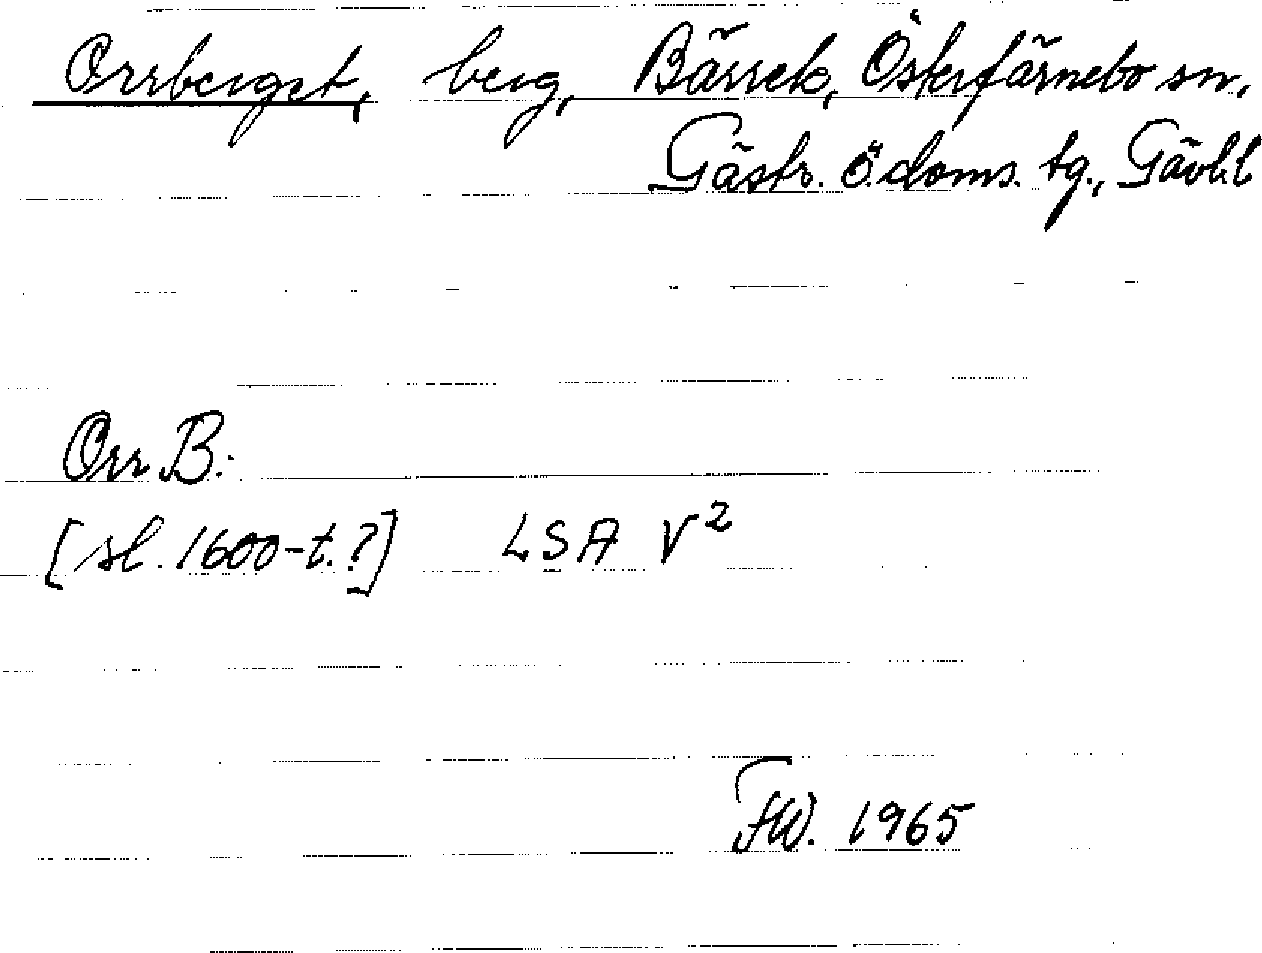 Orrberget, berg, Bärrek, Österfärnebo sn,
Gästr. ö. doms. tg., Gävl.l
Orr B.
[sl. 1600-t.?] LSA V²
FW. 1965